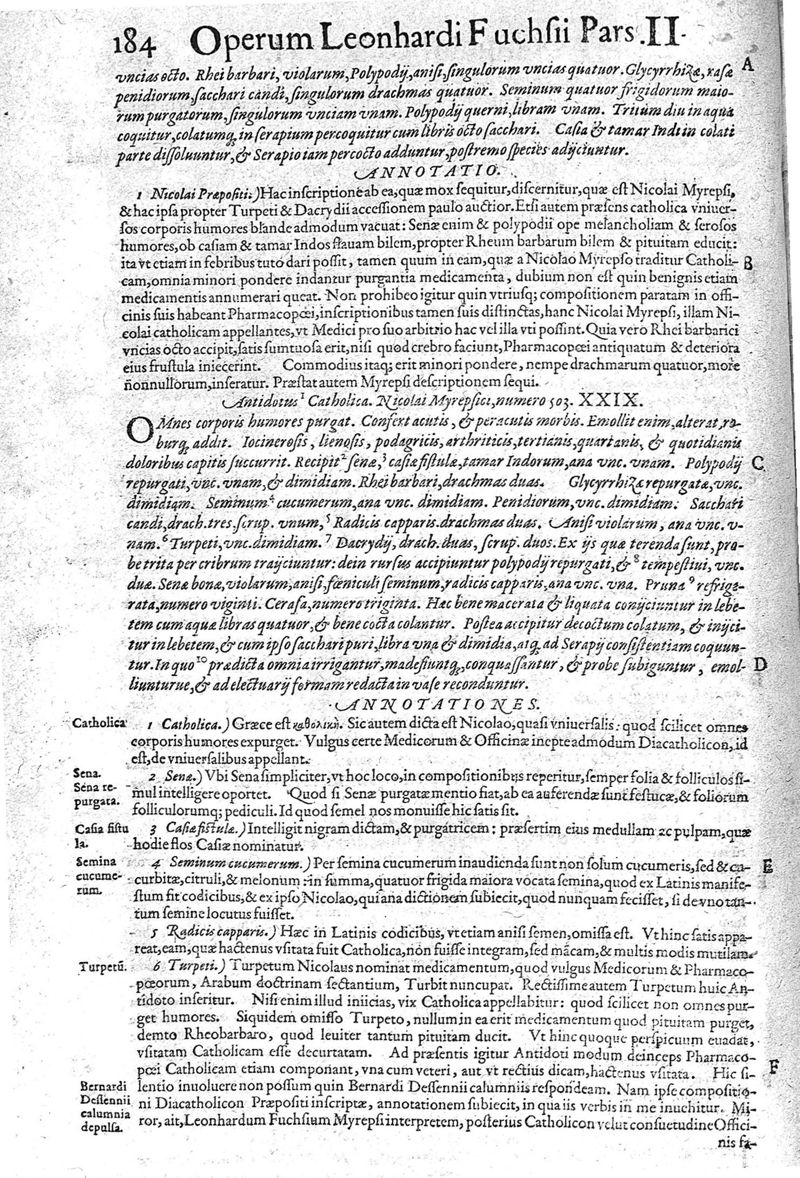 184 Operum Leonhardi Fuchsii Pars. II.
vncias octo. Rhei barbari, violarum, Polypodij, anisi, singulorum vncias quatuor. Glycyrrhizæ, rasæ A
penidiorum, sacchari candi, singulorum drachmas quatuor. Seminum quatuor frigidorum maio-
rum purgatorum, singulorum vnciam vnam. Polypodij querni, libram vnam. Tritum diu in aqua
coquitur, colatumq; in serapium percoquitur cum libris octo sacchari. Casia & tamar Indi in colati
parte dissoluuntur, & Serapio iam percocto adduntur, postremo species adijciuntur.
ANNOTATIO.
1 Nicolai Præpositi.) Hac inscriptione ab ea, quæ mox sequitur, discernitur, quæ est Nicolai Myrepsi,
& hac ipsa propter Turpeti & Dacrydii accessionem paulo auctior. Etsi autem præsens catholica vniuer-
sos corporis humores blande admodum vacuat: Senæ enim & polypodii ope melancholiam & serosos
humores, ob casiam & tamar Indos flauam bilem, propter Rheum barbarum bilem & pituitam educit:
ita vt etiam in febribus tuto dari possit, tamen quum in eam, quæ a Nicolao Myrepso traditur Catholi- B
cam, omnia minori pondere indantur purgantia medicamenta, dubium non est quin benignis etiam
medicamentis annumerari queat. Non prohibeo igitur quin vtriusq; compositionem paratam in offi-
cinis suis habeant Pharmacopœi, inscriptionibus tamen suis distinctas, hanc Nicolai Myrepsi, illam Ni-
colai catholicam appellantes, vt Medici pro suo arbitrio hac vel illa vti possint. Quia vero Rhei barbarici
vncias octo accipit, satis sumtuosa erit, nisi quod crebro faciunt, Pharmacopœi antiquatum & deteriora
eius frustula iniecerint. Commodius itaq; erit minori pondere, nempe drachmarum quatuor, more
nonnullorum, inseratur. Præstat autem Myrepsi descriptionem sequi.
Antidotus ¹ Catholica. Nicolai Myrepsici, numero 503. XXIX.
OMnes corporis humores purgat. Confert acutis, & peracutis morbis. Emollit enim, alterat, ro-
burq; addit. Iocinerosis, lienosis, podagricis, arthriticis, tertianis, quartanis, & quotidianis
doloribus capitis succurrit. Recipit ² senæ, ³ casiæ fistulæ, tamar Indorum, ana vnc. vnam. Polypodij C
repurgati, vnc. vnam, & dimidiam. Rhei barbari, drachmas duas. Glycyrrhizæ repurgatæ, vnc.
dimidiam. Seminum ⁴ cucumerum, ana vnc. dimidiam. Penidiorum, vnc. dimidiam. Sacchari
candi, drach. tres, scrup. vnum, ⁵ Radicis capparis. drachmas duas. Anisi violarum, ana vnc. v-
nam. ⁶ Turpeti, vnc. dimidiam. ⁷ Dacrydij, drach. duas, scrup. duos. Ex ijs quæ terenda sunt, pro-
be trita per cribrum traijciuntur: dein rursus accipiuntur polypodij repurgati, & ⁸ tempestiui, vnc.
duæ. Senæ bonæ, violarum, anisi, fœniculi seminum, radicis capparis, ana vnc. vna. Pruna ⁹ refrige-
rata, numero viginti. Cerasa, numero triginta. Hæc bene macerata & liquata conijciuntur in lebe-
tem cum aquæ libras quatuor, & bene cocta colantur. Postea accipitur decoctum colatum, & inijci-
tur in lebetem, & cum ipso sacchari puri, libra vna & dimidia, atq; ad Serapij consistentiam coquun-
tur. In quo ¹⁰ prædicta omnia irrigantur, madefiuntq;, conquassantur, & probe subiguntur, emol- D
liunturue, & ad electuarij formam redacta in vase reconduntur.
ANNOTATIONES.
Catholica 1 Catholica.) Græce est καθολική. Sic autem dicta est Nicolao, quasi vniuersalis: quod scilicet omnes
corporis humores expurget. Vulgus certe Medicorum & Officinæ inepte admodum Diacatholicon, id
est, de vniuersalibus appellant.
Sena. 2 Senæ.) Vbi Sena simpliciter, vt hoc loco, in compositionibus reperitur, semper folia & folliculos si-
Sena re- mul intelligere oportet. Quod si Senæ purgatæ mentio fiat, ab ea auferendæ sunt festucæ, & foliorum
purgata. folliculorumq; pediculi. Id quod semel nos monuisse hic satis sit.
Casia fistu 3 Casiæ fistulæ.) Intelligit nigram dictam, & purgatricem: præsertim eius medullam ac pulpam, quæ
la. hodie flos Casiæ nominatur.
Semina 4 Seminum cucumerum.) Per semina cucumerum inaudienda sunt non solum cucumeris, sed & cu- E
cucume- curbitæ, citruli, & melonum: in summa, quatuor frigida maiora vocata semina, quod ex Latinis manife-
rum. stum fit codicibus, & ex ipso Nicolao, qui ana dictionem subiecit, quod nunquam fecisset, si de vno tan-
tum semine locutus fuisset.
5 Radicis capparis.) Hæc in Latinis codicibus, vt etiam anisi semen, omissa est. Vt hinc satis appa-
reat, eam, quæ hactenus vsitata fuit Catholica, non fuisse integram, sed mācam, & multis modis mutilam.
Turpetū. 6 Turpeti.) Turpetum Nicolaus nominat medicamentum, quod vulgus Medicorum & Pharmaco-
pœorum, Arabum doctrinam sectantium, Turbit nuncupat. Rectissime autem Turpetum huic An-
tidoto inseritur. Nisi enim illud iniicias, vix Catholica appellabitur: quod scilicet non omnes pur-
get humores. Siquidem omisso Turpeto, nullum in ea erit medicamentum quod pituitam purget,
demto Rheobarbaro, quod leuiter tantum pituitam ducit. Vt hinc quoque perspicuum euadat,
vsitatam Catholicam esse decurtatam. Ad præsentis igitur Antidoti modum deinceps Pharmaco-
pœi Catholicam etiam componant, vna cum veteri, aut vt rectius dicam, hactenus vsitata. Hic si- F
Bernardi lentio inuoluere non possum quin Bernardi Dessennii calumniis respondeam. Nam ipse compositio-
Dessennii ni Diacatholicon Præpositi inscriptæ, annotationem subiecit, in qua iis verbis in me inuehitur. Mi-
calumnia ror, ait, Leonhardum Fuchsium Myrepsi interpretem, posterius Catholicon velut consuetudine Offici-
depulsa. nis fa-